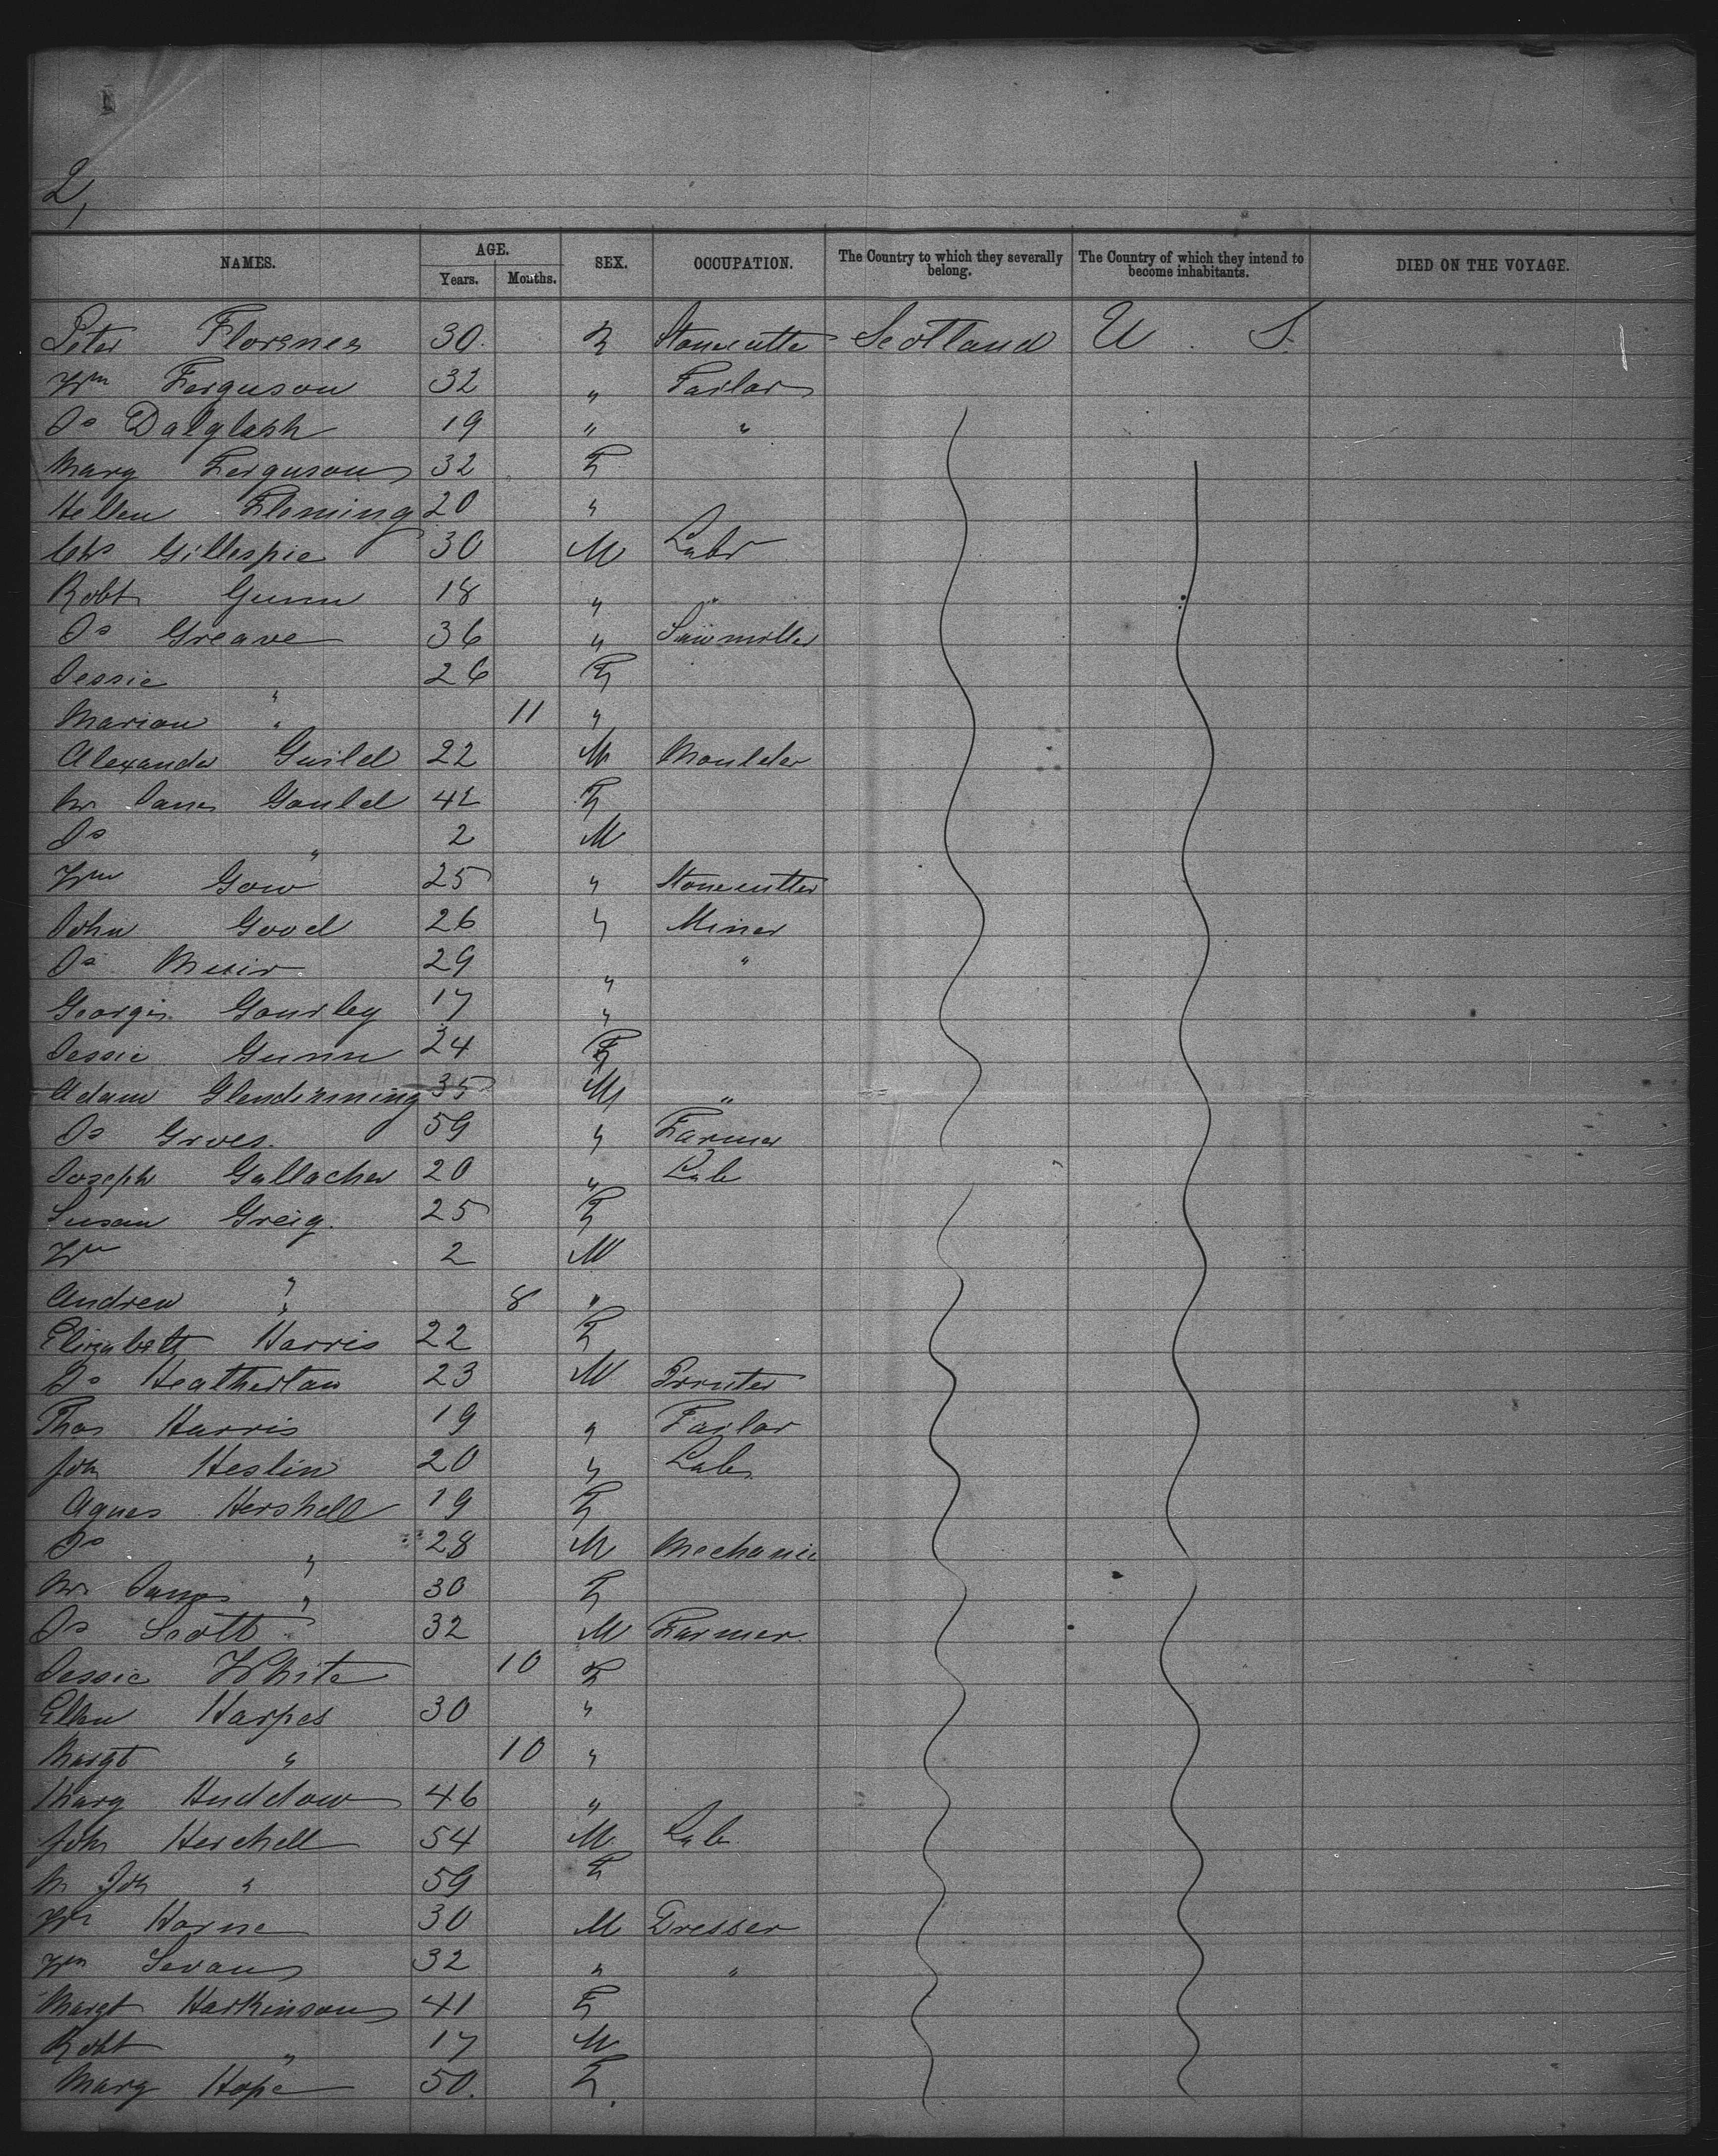 2,
NAMES. AGE. SEX. OCCUPATION. The Country to which they severally belong. The Country of which they intend to become inhabitants. DIED ON THE VOYAGE.
Years. Months.
Peter 30. Stonecutte Scotland U. S.
Wm Ferguson 32 " Tailor
Js Dalglesh 19 " "
Mary Ferguson 32 F
Hellen Fleming 20 "
Chs Gillespie 30 M Labr
Robt Gunn 18 " "
Js Greave 36 " Sawmiller
Jessie " 26 F
Marion " 11 "
Alexander Guild 22 M Moulder
Mrs James Gould 42 F
Js " 2 M
Wm Gow 25 " Stonecutter
John Good 26 " Miner
Js Muir 29 " "
George Gourley 17 "
Jessie Gunn 24 F
Adam Glendinning 35 M "
Js Groes. 59 " Farmer
Joseph Gallacher 20 " Lab
Susan Greig. 25 F
Wm " 2 M
Andrew " 8 "
Elizabeth Harris 22 F
Js Heatherton 23 M Printer
Thos Harris 19 " Tailor
Joh Heslin 20 " Lab
Agnes Hershell 19 F
Js " 28 M Mechanic
Mrs James " 30 F
Js Scott 32 M Farmer.
Jessie White 10 F
Ellen Harper 30 "
Margt " 10 "
Mary 46 "
Joh Herchell 54 M Lab.
M Joh " 59 F
Wm Horne 30 M Dresser
Wm 32 " "
Margt Harkinson 41 F
Robt " 17 M
Mary Hope 50. F.